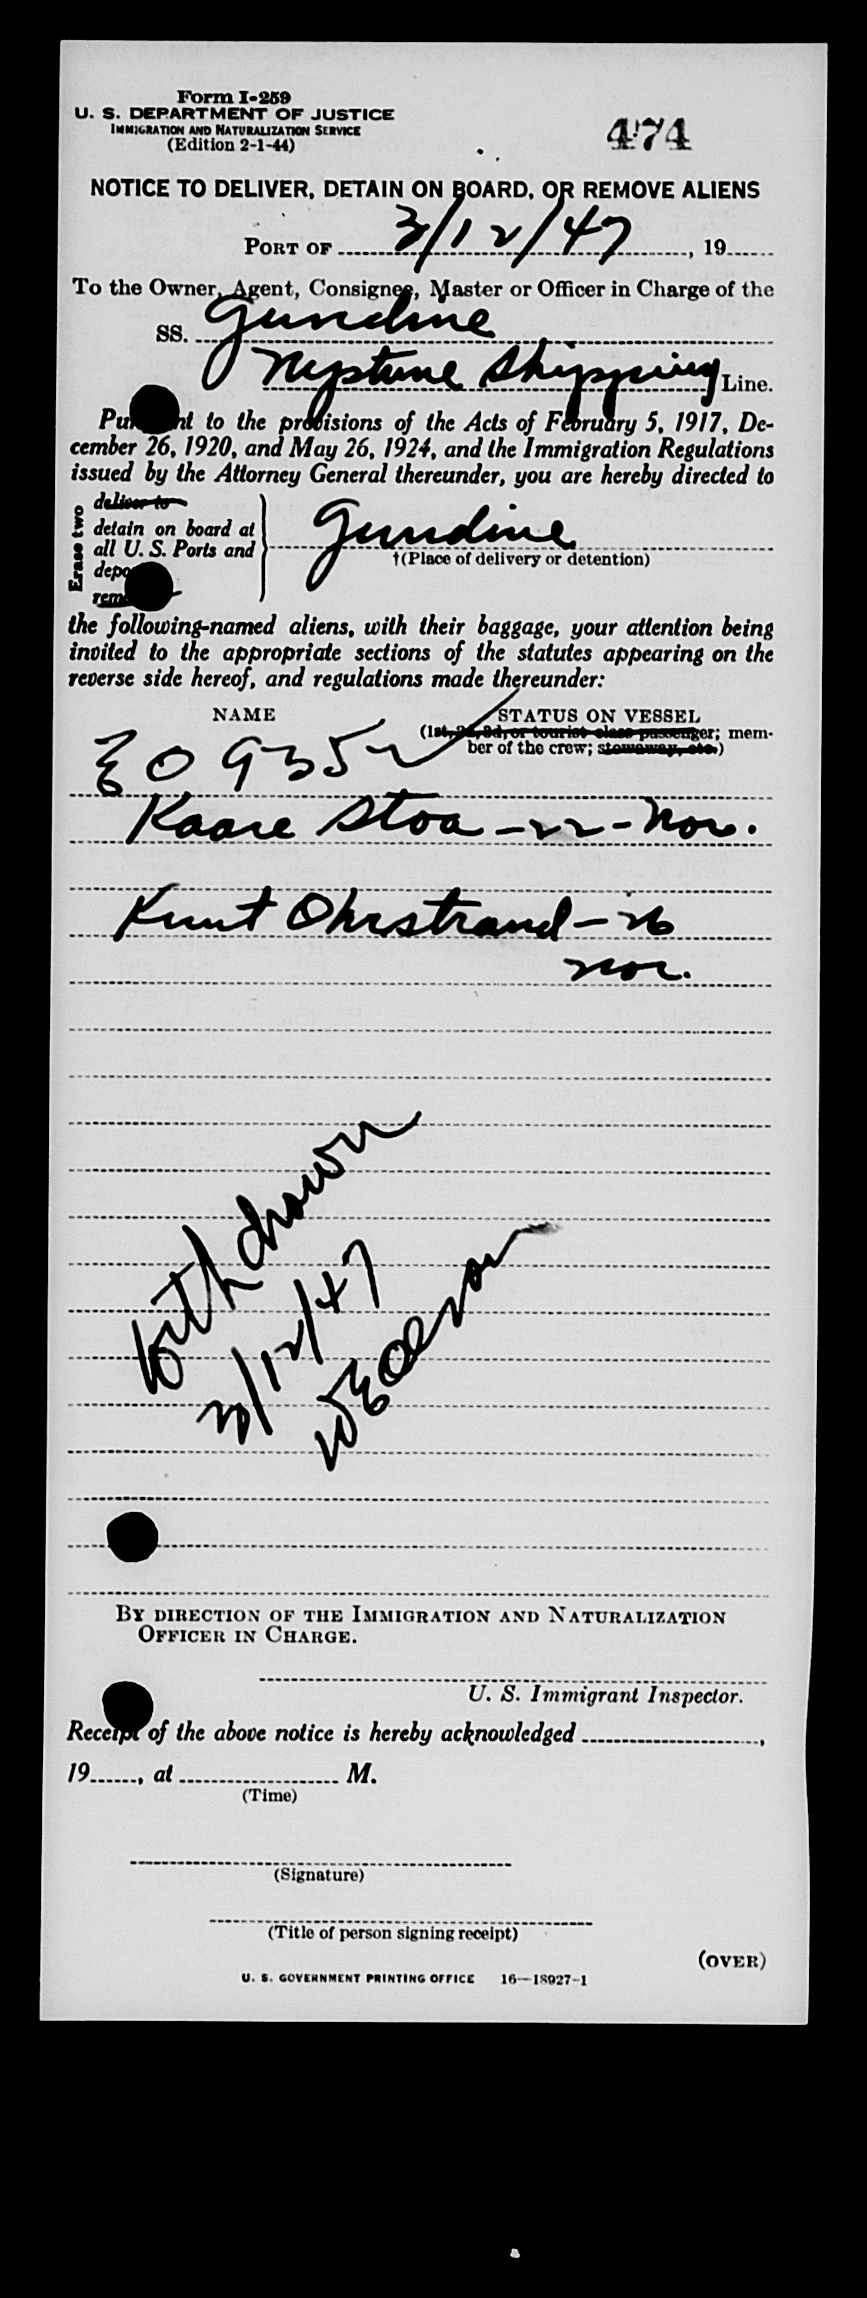 Form I-259
U. S. DEPARTMENT OF JUSTICE
IMMIGRATION AND NATURALIZATION SERVICE
(Edition 2-1-44)
474
NOTICE TO DELIVER, DETAIN ON BOARD, OR REMOVE ALIENS
PORT OF 3/12/47, 19
To the Owner, Agent, Consignee, Master or Officer in Charge of the
SS. Gundine
Neptune Shipping Line.
Pursuant to the provisions of the Acts of February 5, 1917, De-
cember 26, 1920, and May 26, 1924, and the Immigration Regulations
issued by the Attorney General thereunder, you are hereby directed to
Erase two
deliver to
detain on board at
all U. S. Ports and
Gundine
†(Place of delivery or detention)
the following-named aliens, with their baggage, your attention being
invited to the appropriate sections of the statutes appearing on the
reverse side hereof, and regulations made thereunder:
NAME
STATUS ON VESSEL
(1st, 2d, 3d, or tourist class passenger; mem-
ber of the crew; stowaway, etc.)
EO 9352
Kaare Stoa - 22 - Nor.
Knut Ohrstrand - 26
Nor.
Withdrawn
3/12/47
By direction of the Immigration and Naturalization
Officer in Charge.
U. S. Immigrant Inspector.
Receipt of the above notice is hereby acknowledged ,
19 , at M.
(Time)
(Signature)
(Title of person signing receipt)
(OVER)
U. S. GOVERNMENT PRINTING OFFICE 16—18927-1